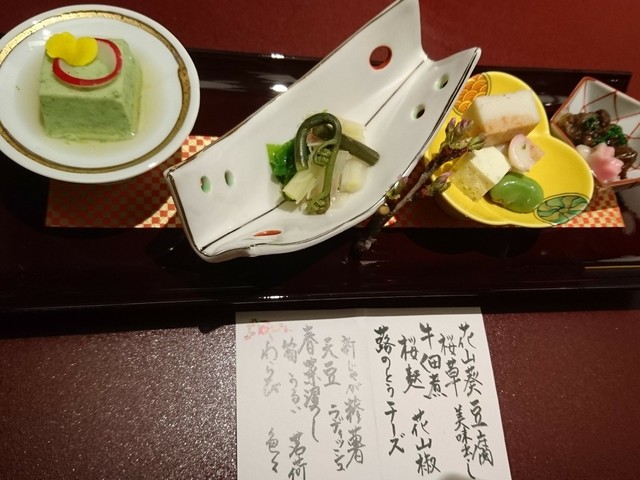 花山葵豆腐
桜草 美味出し
牛佃煮
桜麩 花山椒
蕗のとうチーズ
新じゃが 薯
天豆 ラディッシュ
春菜浸し
筍 うるい 茗荷
わらび 色々